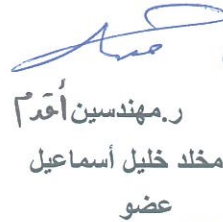 ر.مهندسين أقدم
مخلد خليل أسماعيل
عضو